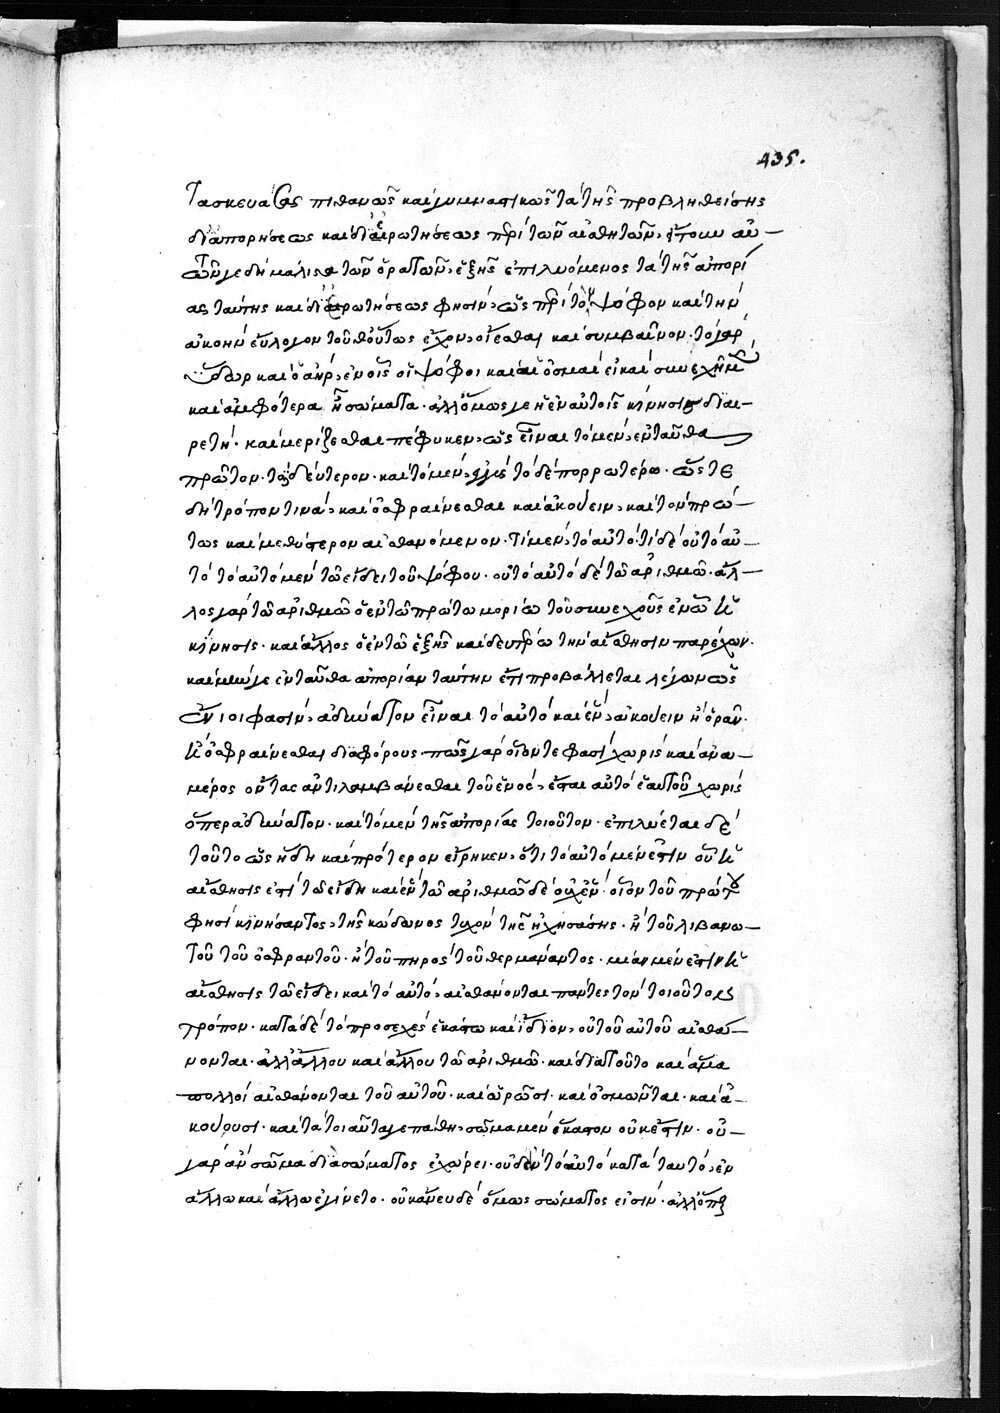 435.
τασκευάσας πιθανῶς καὶ γυμναστικῶς τὰ τῆς προβληθείσης
διαπορήσεως καὶ διερωτήσεως περὶ τῶν αἰσθητῶν, ἔτουν αὐ-
τῶν γε δὴ μάλιστα τῶν ὁρατῶν, ἑξῆς ἐπιλυόμενος τὰ τῆς ἀπορί
ας ταύτης καὶ διερωτήσεως φησὶν, ὡς περὶ τὸν ψόφον καὶ τὴν
ἀκοὴν εὔλογον τοῦθ' οὕτως ἔχον, οἴεσθαι καὶ συμβαῖνον. τὸ γὰρ
ὕδωρ καὶ ὁ ἀὴρ, ἐν οἷς οἱ ψόφοι καὶ αἱ ὀσμαὶ, εἰ καὶ συνεχῆ μὲν
καὶ ἀμφότερα ᾖ σώματα. ἀλλ' ὅμως γε ἡ ἐν αὐτοῖς κίνησις διαι-
ρετή. καὶ μερίζεσθαι πέφυκεν, ὡς εἶναι τὸ μὲν, ἐνταῦθα
πρῶτον. τὸ δὲ δεύτερον. καὶ τὸ μὲν, ἐγγὺς τὸ δὲ πορρωτέρω. ὥς τε
δὴ τρόπον τινὰ, καὶ ὀσφραίνεσθαι καὶ ἀκούειν, καὶ τὸν πρώ-
τως καὶ μεθύστερον αἰσθανόμενον. πῆ μὲν, τὸ αὐτό. πῆ δὲ οὐ τὸ αὐ-
τὸ τὸ αὐτὸ μὲν τῷ εἴδει τοῦ ψόφου. οὐ τὸ αὐτὸ δὲ τῷ ἀριθμῷ. ἄλ-
λος γὰρ τῷ ἀριθμῷ ὁ ἐν τῷ πρώτῳ μορίῳ τοῦ συνεχοῦς ἐν ᾧ ἡ
κίνησις. καὶ ἄλλος ὁ ἐν τῷ ἑξῆς καὶ δευτέρῳ τὴν αἴσθησιν παρέχων.
καὶ μήν γε ἐνταῦθα ἀπορίαν ταύτην ἔτι προβάλλεται λέγων ὡς
ἔνιοι φασὶν, ἀδύνατον εἶναι τὸ αὐτὸ καὶ ἓν, ἀκούειν ἢ ὁρᾶν.
ἢ ὀσφραίνεσθαι διαφόρους πῶς γὰρ οἷόν τε φασὶ χωρὶς καὶ ἀνα-
μέρος ὄντας ἀντιλαμβάνεσθαι τοῦ ἑνὸς, ἔσται αὐτὸ ἑαυτοῦ χωρὶς
ὅπερ ἀδύνατον. καὶ τὸ μὲν τῆς ἀπορίας τοιοῦτον. ἐπιλύεται δὲ
τοῦτο ὡς ἤδη καὶ πρότερον εἴρηκεν, ὅτι τὸ αὐτὸ μέν ἐστιν οὗ ἡ
αἴσθησις ἐπὶ τῷ εἴδη καὶ ἓν τῷ ἀριθμῷ δὲ οὐχ ἕν. οἷον τοῦ πρώτου
φησὶ κινήσαντος, τῆς κώδωνος τυχὸν τῆς ἠχησάσης. ἢ τοῦ λιβανω-
τοῦ τοῦ ὀσφραντοῦ. ἢ τοῦ πυρὸς τοῦ θερμάναντος. μία μέν ἐστιν ἡ
αἴσθησις τῷ εἴδει καὶ τὸ αὐτὸ, αἰσθάνονται πάντες τὸν τοιοῦτον
τρόπον. κατὰ δὲ τὸ προσεχὲς ἑκάστῳ καὶ ἴδιον, οὐ τοῦ αὐτοῦ αἰσθά-
νονται. ἀλλ' ἄλλου καὶ ἄλλου τῷ ἀριθμῷ. καὶ διὰ τοῦτο καὶ ἅμα
πολλοὶ αἰσθάνονται τοῦ αὐτοῦ. καὶ ὁρῶσι. καὶ ὀσμῶνται. καὶ ἀ-
κούουσι. καὶ τὰ τοιαῦτα γε πάθη, σῶμα μὲν ἕκαστον οὐκ ἔστιν. οὐ-
γὰρ ἂν σῶμα διὰ σώματος ἐχώρει. οὐδ' ἐν τὸ αὐτὸ κατὰ ταυτὸ, ἐν
ἄλλῳ καὶ ἄλλῳ ἐγίνετο. οὐκ ἄνευ δὲ ὅμως σώματος εἰσίν. ἀλλ' ὅπερ